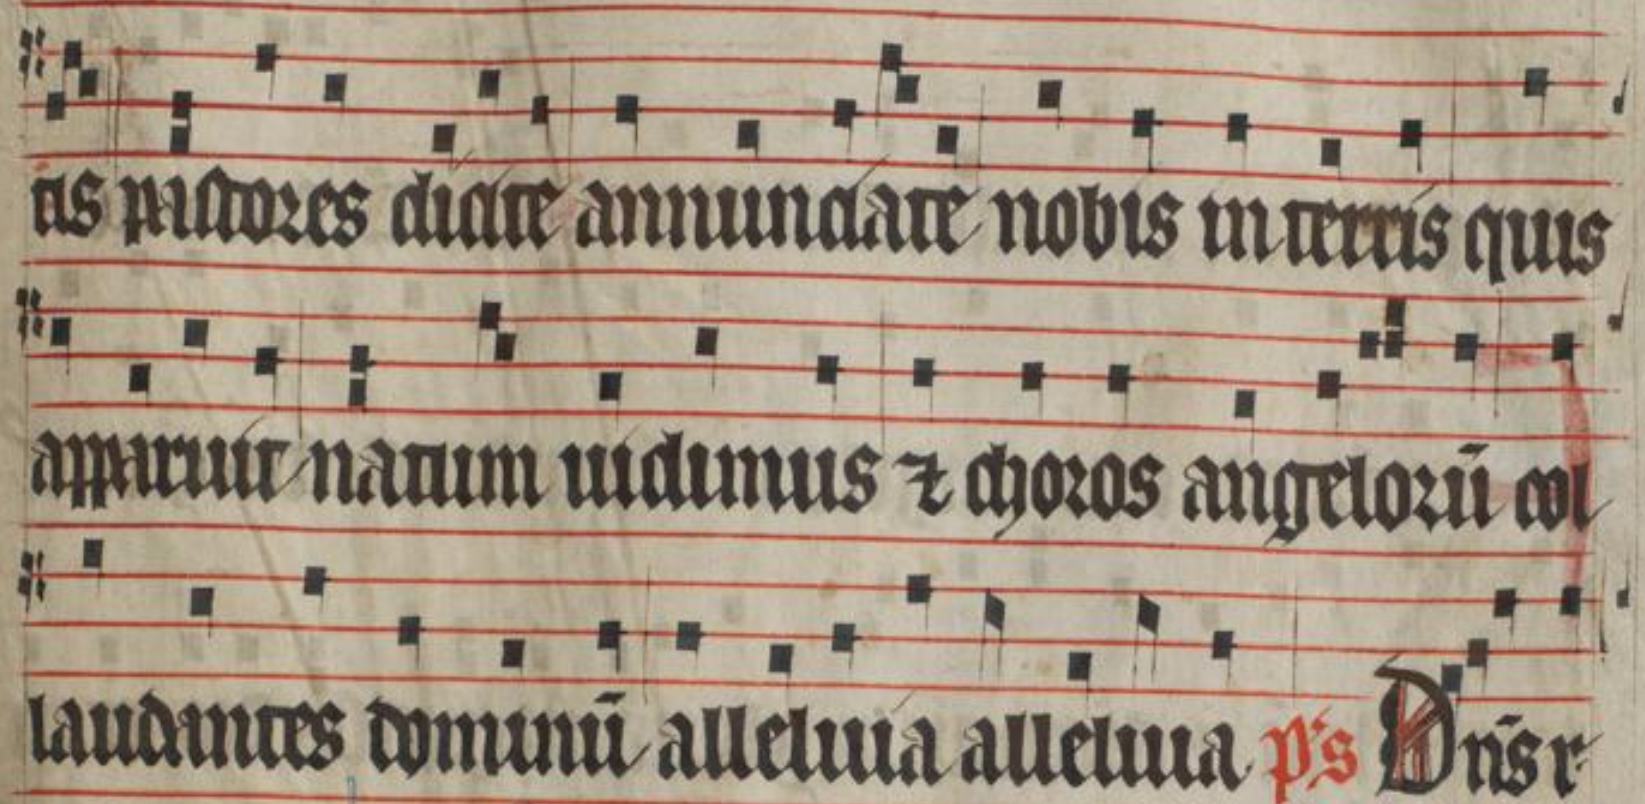 tis pastores dicite annunciate nobis in terris quis
apparuit natum uidimus ⁊ choros angelorū col
laudantes dominū alleluia alleluia ps Dn̄s r